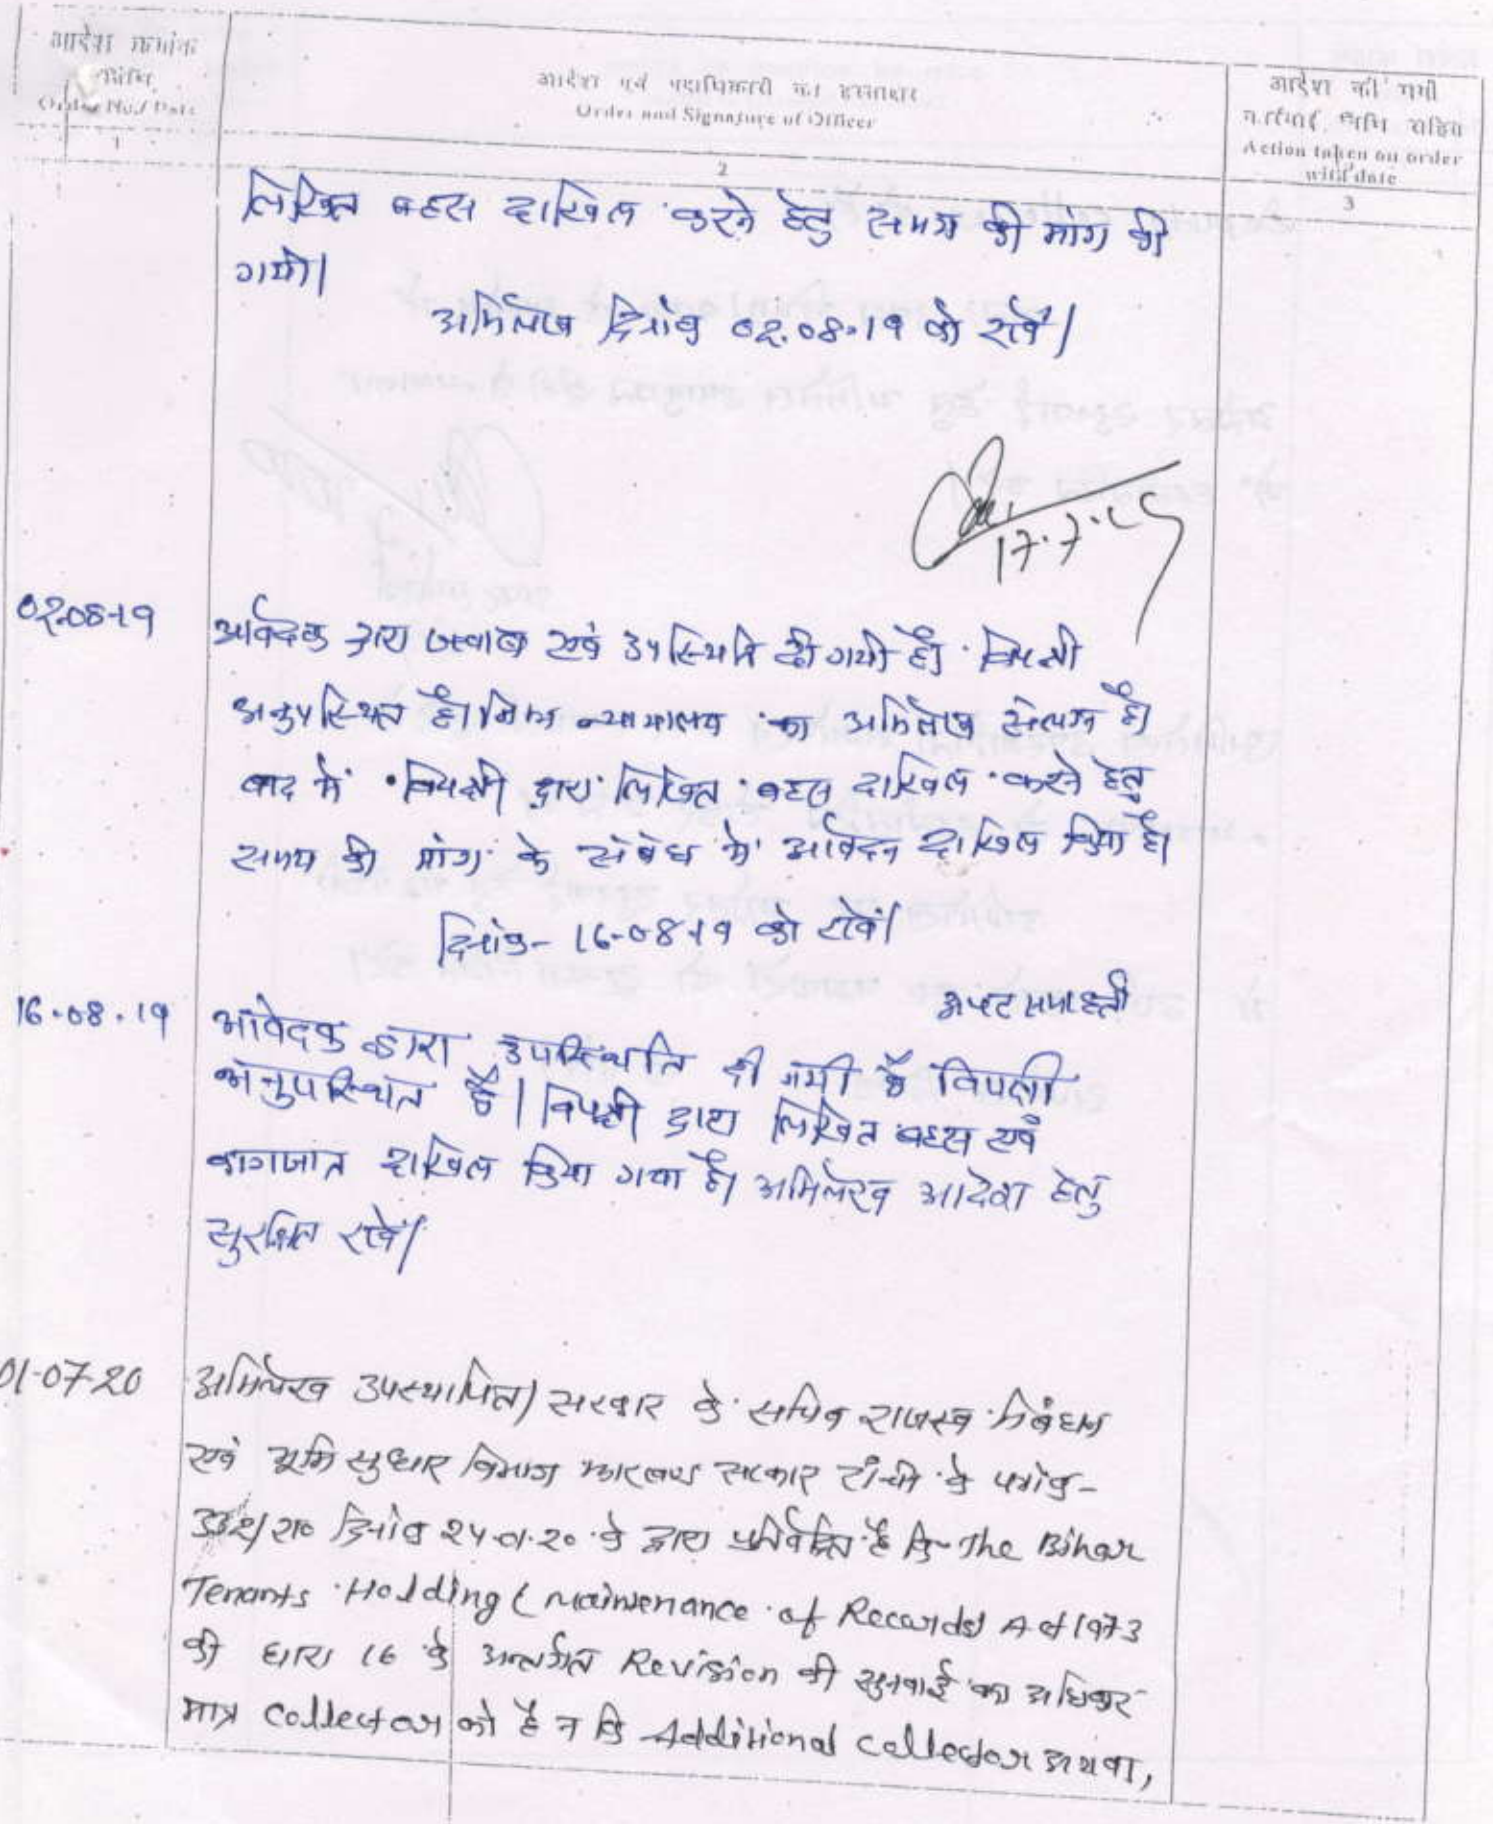 आदेश क्रमांक
तिथि
Order No./ Date
1
आदेश एवं पदाधिकारी का हस्ताक्षर
Order and Signature of Officer
2
आदेश की गयी
कार्रवाई तिथि सहित
Action taken on order
with date
3
लिखित बहस दाखिल करने हेतु समय की मांग की
गयी।
अभिलेख दिनांक 02.08.19 को रखें।
17.7.19
02.08.19
आवेदक द्वारा जवाब एवं उपस्थिति दी गयी है। विपक्षी
अनुपस्थित है। निम्न न्यायालय का अभिलेख संलग्न है।
बाद में विपक्षी द्वारा लिखित बहस दाखिल करने हेतु
समय की मांग के संबंध में आवेदन दाखिल किया है।
दिनांक- 16-08-19 को रखें।
अपर समाहर्ता
16.08.19
आवेदक द्वारा उपस्थिति दी गयी है विपक्षी
अनुपस्थित है। विपक्षी द्वारा लिखित बहस एवं
कागजात दाखिल किया गया है। अभिलेख आदेश हेतु
सुरक्षित रखें।
01-07-20
अभिलेख उपस्थापित। सरकार के सचिव राजस्व निबंधन
एवं भूमि सुधार विभाग झारखण्ड सरकार राँची के पत्रांक-
रा० दिनांक 24.01.20 के द्वारा प्रतिवेदित है कि The Bihar
Tenants Holding (Maintenance of Records) Act 1973
की धारा 16 के अन्तर्गत Revision की सुनवाई का अधिकार
मात्र Collector को है न कि Additional Collector अथवा,